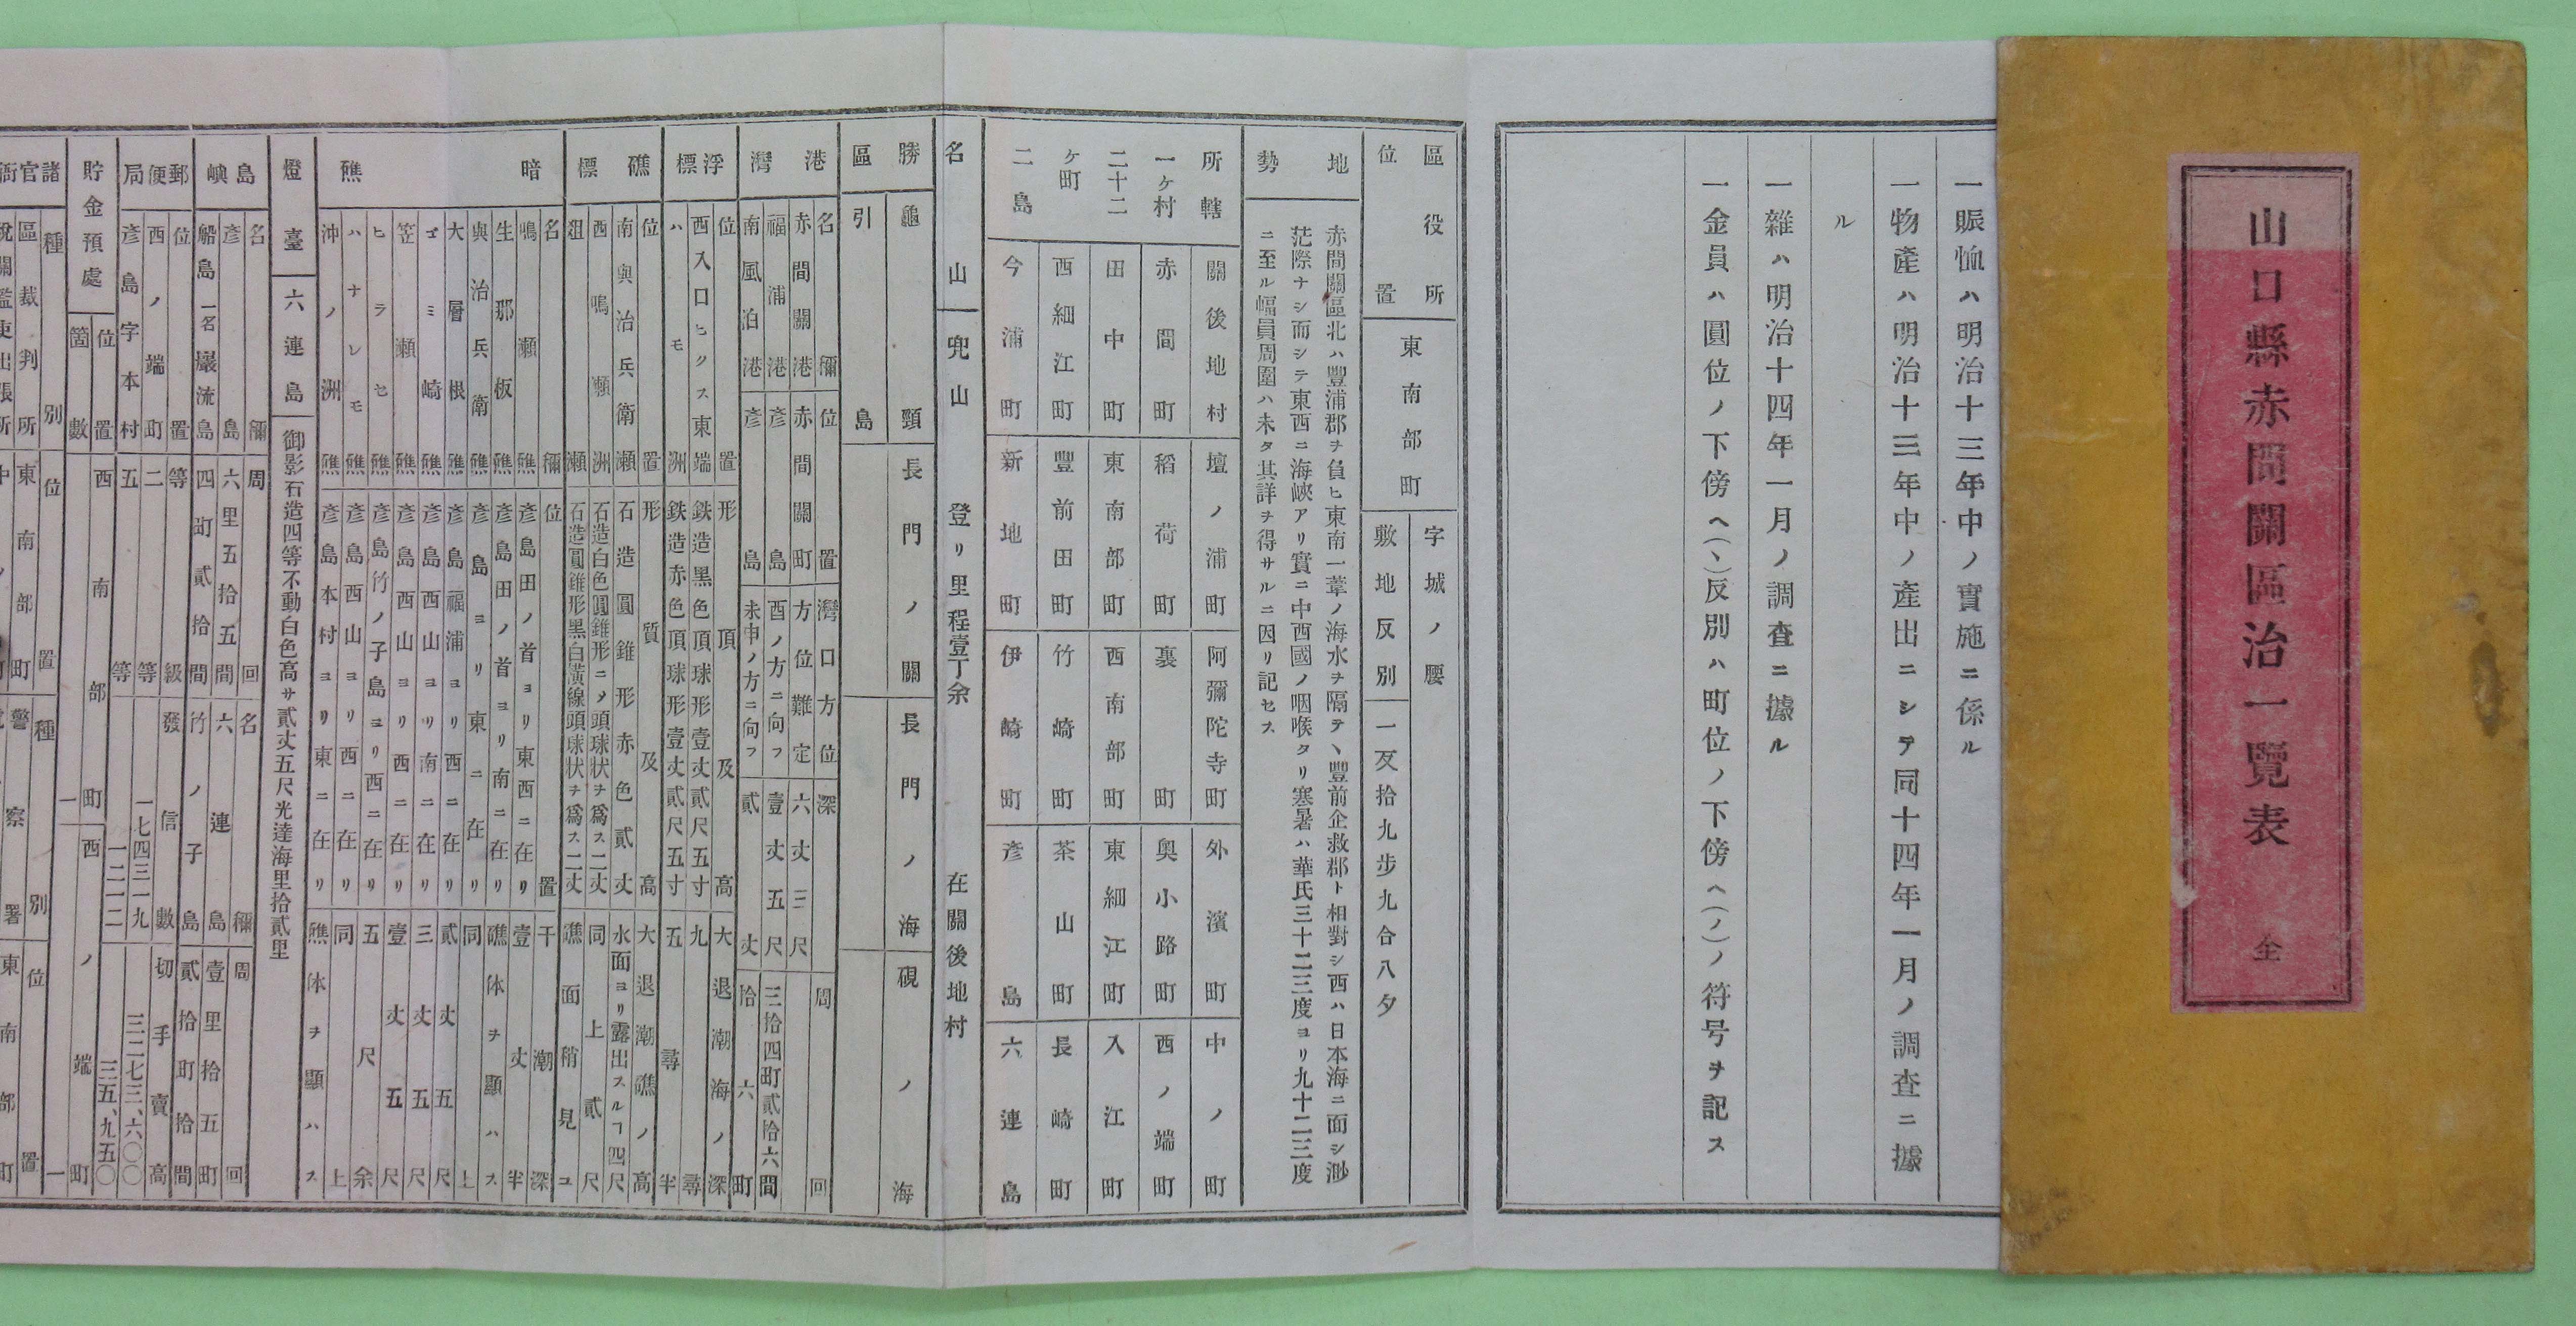 山口縣赤間關區治一覽表 全
一賑恤ハ明治十三年中ノ實施ニ係ル
一物產ハ明治十三年中ノ產出ニシテ同十四年一月ノ調査ニ據
ル
一雜ハ明治十四年一月ノ調査ニ據ル
一金員ハ圓位ノ下傍ヘ(、)反別ハ町位ノ下傍ヘ(ノ)ノ符号ヲ記ス
區役所
位置
東南部町
字城ノ腰
敷地反別
一反拾九步九合八夕
地勢
赤間關區北ハ豐浦郡ヲ負ヒ東南一葦ノ海水ヲ隔テ丶豐前企救郡ト相對シ西ハ日本海ニ面シ渺
茫際ナシ而シテ東西ニ海峽アリ實ニ中西國ノ咽喉タリ寒暑ハ華氏三十二三度ヨリ九十二三度
ニ至ル幅員周圍ハ未タ其詳ヲ得サルニ因リ記セス
所轄
一ケ村
二十二
ケ町
二島
關後地村 壇ノ浦町 阿彌陀寺町 外濱町 中ノ町
赤間町 稻荷町 裏町 奧小路町 西ノ端町
田中町 東南部町 西南部町 東細江町 入江町
西細江町 豐前田町 竹崎町 茶山町 長崎町
今浦町 新地町 伊崎町 彥島 六連島
名山 兜山 登リ里程壹丁余 在關後地村
勝區
龜頸 長門ノ關 長門ノ海 硯ノ海
引島
港灣
名稱 位置 灣口方位 深 周回
赤間關港 赤間關町 方位難定 六丈三尺
福浦港 彥島 酉ノ方ニ向フ 壹丈五尺 三拾四町貳拾六間
南風泊港 彥島 未申ノ方ニ向フ 貳丈 拾六町
浮標
位置 形頂及高 大退潮海ノ深
西入口ヒクス東端 鉄造黑色頂球形壹丈貳尺五寸 九尋
ハモ洲 鉄造赤色頂球形壹丈貳尺五寸 五尋半
礁標
位置 形質及高 大退潮礁ノ高
南與治兵衛瀨 石造圓錐形赤色貳丈 水面ヨリ露出スルヿ四尺
西鳴瀨洲 石造白色圓錐形ニ〆頭球状ヲ爲ス二丈 同上貳尺
俎瀨 石造圓錐形黑白潢線頭球状ヲ爲ス二丈 礁面稍見ユ
暗礁
名稱 位置 干潮深
鳴瀨礁 彥島田ノ首ヨリ東西ニ在リ 壹丈半
生那板礁 彥島田ノ首ヨリ南ニ在リ 礁体ヲ顯ハス
與治兵衛礁 彥島ヨリ東ニ在リ 同上
大層根礁 彥島福浦ヨリ西ニ在リ 貳丈五尺
ゴミ崎礁 彥島西山ヨリ南ニ在リ 三丈五尺
笠瀨礁 彥島西山ヨリ西ニ在リ 壹丈五尺
ヒラセ礁 彥島竹ノ子島ヨリ西ニ在リ 五尺余
ハナレモ礁 彥島西山ヨリ西ニ在リ 同上
沖ノ洲礁 彥島本村ヨリ東ニ在リ 礁体ヲ顯ハス
燈臺 六連島 御影石造四等不動白色高サ貳丈五尺光達海里拾貳里
島嶼
名稱 周回 名稱 周回
彥島 六里五拾五間 六連島 壹里拾五町
船島一名巖流島 四町貳拾間 竹ノ子島 貳拾町拾間
郵便局
位置 等級 發信數 切手賣高
西ノ端町 二等 一七四三一九 三二七三、六〇〇
彥島字本村 五等 一二一二 三五、九五〇
貯金預處
位置 西南部町 西ノ端町
箇數 一 一
諸官衙
種別 位置 種別 位置
區裁判所 東南部町 警察署 東南部町